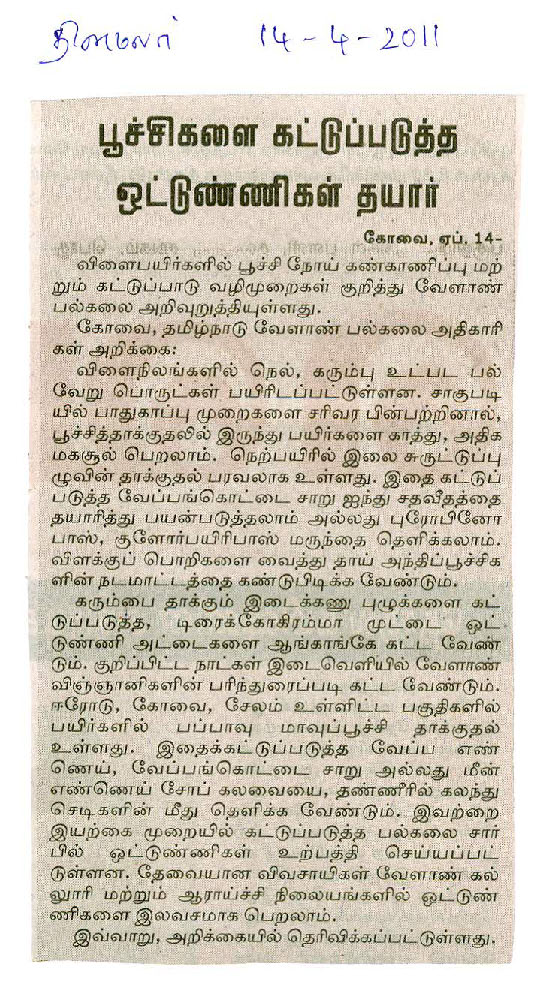 தினமலர் 14-4-2011
பூச்சிகளை கட்டுப்படுத்த
ஒட்டுண்ணிகள் தயார்
கோவை, ஏப். 14-
விளைபயிர்களில் பூச்சி நோய் கண்காணிப்பு மற்
றும் கட்டுப்பாடு வழிமுறைகள் குறித்து வேளாண்
பல்கலை அறிவுறுத்தியுள்ளது.
கோவை, தமிழ்நாடு வேளாண் பல்கலை அதிகாரி
கள் அறிக்கை:
விளைநிலங்களில் நெல், கரும்பு உட்பட பல்
வேறு பொருட்கள் பயிரிடப்பட்டுள்ளன. சாகுபடி
யில் பாதுகாப்பு முறைகளை சரிவர பின்பற்றினால்,
பூச்சித்தாக்குதலில் இருந்து பயிர்களை காத்து, அதிக
மகசூல் பெறலாம். நெற்பயிரில் இலை சுருட்டுப்பு
ழுவின் தாக்குதல் பரவலாக உள்ளது. இதை கட்டுப்
படுத்த வேப்பங்கொட்டை சாறு ஐந்து சதவீதத்தை
தயாரித்து பயன்படுத்தலாம் அல்லது புரோபினோ
பாஸ், குளோர்பயிரிபாஸ் மருந்தை தெளிக்கலாம்.
விளக்குப் பொறிகளை வைத்து தாய் அந்திப்பூச்சிக
ளின் நடமாட்டத்தை கண்டுபிடிக்க வேண்டும்.
கரும்பை தாக்கும் இடைக்கணு புழுக்களை கட்
டுப்படுத்த, டிரைக்கோகிரம்மா முட்டை ஒட்
டுண்ணி அட்டைகளை ஆங்காங்கே கட்ட வேண்
டும். குறிப்பிட்ட நாட்கள் இடைவெளியில் வேளாண்
விஞ்ஞானிகளின் பரிந்துரைப்படி கட்ட வேண்டும்.
ஈரோடு, கோவை, சேலம் உள்ளிட்ட பகுதிகளில்
பயிர்களில் பப்பாவு மாவுப்பூச்சி தாக்குதல்
உள்ளது. இதைக்கட்டுப்படுத்த வேப்ப எண்
ணெய், வேப்பங்கொட்டை சாறு அல்லது மீன்
எண்ணெய் சோப் கலவையை, தண்ணீரில் கலந்து
செடிகளின் மீது தெளிக்க வேண்டும். இவற்றை
இயற்கை முறையில் கட்டுப்படுத்த பல்கலை சார்
பில் ஒட்டுண்ணிகள் உற்பத்தி செய்யப்பட்
டுள்ளன. தேவையான விவசாயிகள் வேளாண் கல்
லூரி மற்றும் ஆராய்ச்சி நிலையங்களில் ஒட்டுண்
ணிகளை இலவசமாக பெறலாம்.
இவ்வாறு, அறிக்கையில் தெரிவிக்கப்பட்டுள்ளது.